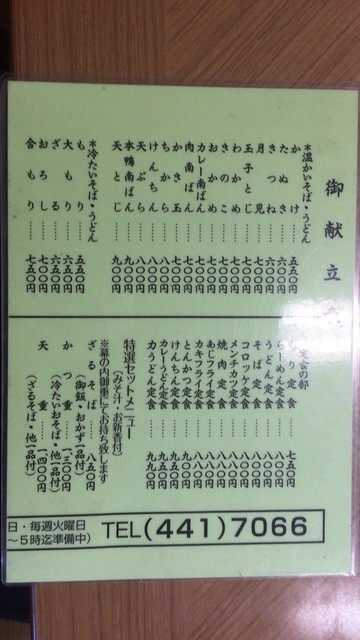 御献立
*温かいそば・うどん
かけ……五五〇円
たぬき……六〇〇円
きつね……六〇〇円
月見……
玉子とじ……七〇〇円
わかめ……七〇〇円
きのこ……七〇〇円
おかめ……七〇〇円
カレー南ばん
肉南ばん……
かき玉……
ちから……
けんちん……
天ぷら……八〇〇円
本鴨南ばん……九〇〇円
天とじ……九〇〇円
*冷たいそば・うどん
もり……五五〇円
大もり……六五〇円
ざる……六五〇円
おろし……七〇〇円
合もり……七五〇円
定食の部
り定食……七五〇円
らーめん定食
うどん定食……
そば定食……
コロッケ定食……八〇〇円
メンチカツ定食……八〇〇円
焼肉定食……
あじフライ定食……
カキフライ定食……
とんかつ定食……九〇〇円
けんちん定食……九五〇円
カレーうどん定食……
力うどん定食……九九〇円
特選セットメニュー
(みそ汁・お新香付)
※幕の内御重にてお持ち致します
ざるそば……八五〇円
(御飯・おかず一品付)
かつ重……一、三〇〇円
(冷たいおそば・他一品付)
天重……一、四〇〇円
(ざるそば・他一品付)
日・毎週火曜日
～5時迄準備中)
TEL(441)7066